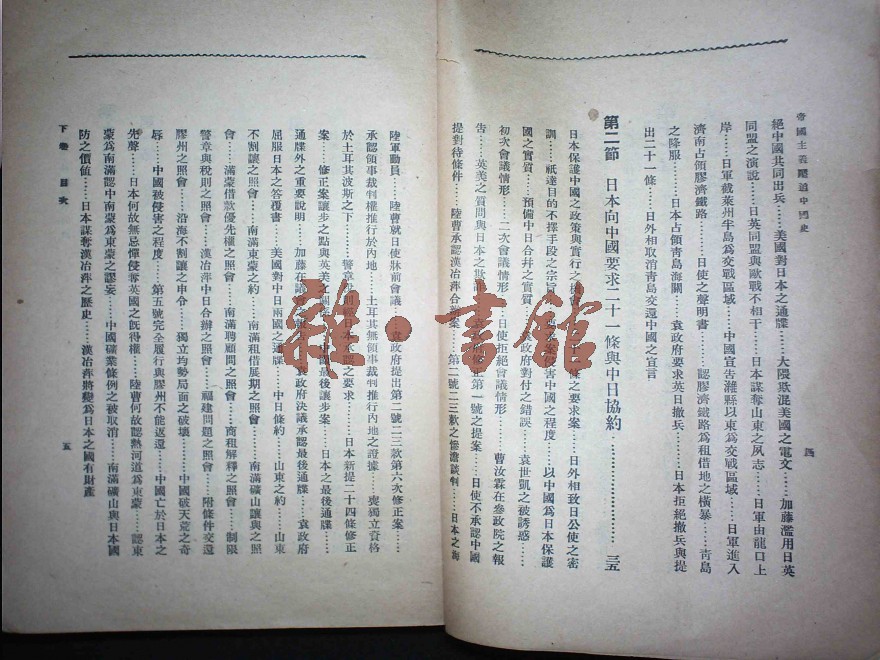 帝國主義壓迫中國史
四
絕中國共同出兵……美國對日本之通牒……大隈欺混美國之電文……加藤濫用日英
同盟之演說……日英同盟與歐戰不相干……日本謀奪山東之夙志……日軍由龍口上
岸……日軍截萊州半島爲交戰區域……中國宣告濰縣以東爲交戰區域……日軍進入
濟南占領膠濟鐵路……日使之聲明書……認膠濟鐵路爲租借地之橫暴……靑島
之降服……日本占領靑島海關……袁政府要求英日撤兵……日本拒絕撤兵與提
出二十一條……日外相取消靑島交還中國之宣言
第二節 日本向中國要求二十一條與中日協約……三五
日本保護中國之政策與實行之機會……條之要求案……日外相致日公使之密
訓……祇達目的不擇手段之宗旨……要求案侵害中國之程度……以中國爲日本保護
國之實質……預備中日合幷之實質……袁政府對付之錯誤……袁世凱之被誘惑……
初次會議情形……二次會議情形……日使拒絕會議情形……曹汝霖在參政院之報
告……英美之質問與日本之欺……袁政府修正第一號之提案……日使不承認中國
提對待條件……陸曹承認漢冶萍合辦案……第二號二三款之慘澹談判……日本之海
陸軍動員……陸曹就日使牀前會議……袁政府提出第二號二三款第六次修正案……
承認領事裁判權推行於內地……土耳其無領事裁判推行內地之證據……喪獨立資格
於土耳其波斯之下……警章……經日本承認之要求……日本新提二十四條修正
案……修正案讓步之點與英美之關係……中國最後讓步案……日本之最後通牒……
通牒外之重要說明……加藤在議會之報告……袁政府決議承認最後通牒……袁政府
屈服日本之答覆書……美國對中日兩國之通牒……中日條約……山東之約……山東
不割讓之照會……南滿東蒙之約……南滿租借展期之照會……南滿礦山讓與之照
會……滿蒙借款優先權之照會……南滿聘顧問之照會……商租解釋之照會……制限
警章與稅則之照會……漢冶萍中日合辦之照會……福建問題之照會……附條件交還
膠州之照會……沿海不割讓之申令……獨立均勢局面之破壞……中國破天荒之奇
辱……中國被侵害之程度……第五號完全履行與膠州不能返還……中國亡於日本之
先聲……日本何故無忌憚侵英國之旣得權……陸曹何故認熱河道爲東蒙……認東
蒙爲南滿認中南蒙爲東蒙之謬妄……中國礦業條例之被取消……南滿礦山與日本國
防之價值……日本謀奪漢冶萍之歷史……漢冶萍將變爲日本之國有財產
下卷 目次
五
雜·書館